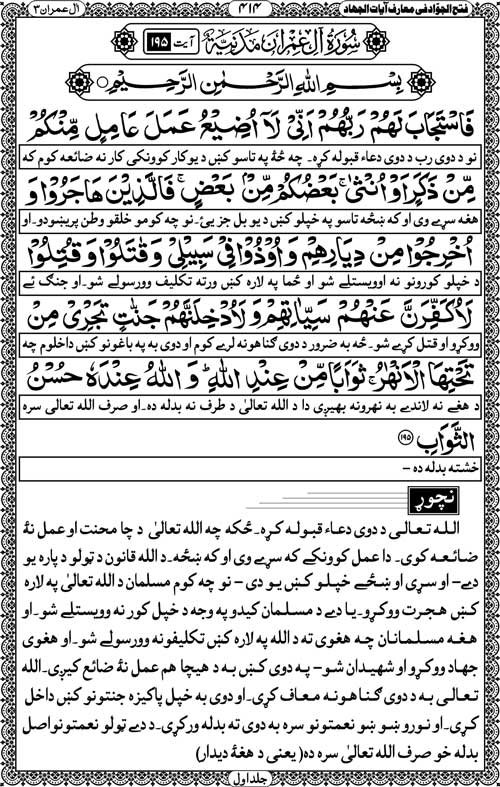 فتح الجوّاد فی معارف آیات الجهاد
۴۱۴
آل عمران ۳
سُورَة آلِ عِمْرَانَ مَدَنِيَّة آیت ۱۹۵
بِسْمِ اللهِ الرَّحْمٰنِ الرَّحِيْمِ
فَاسْتَجَابَ لَهُمْ رَبُّهُمْ اَنِّىْ لَآ اُضِيْعُ عَمَلَ عَامِلٍ مِّنْكُمْ
نو د دوی رب د دوی دعاء قبوله کړه۔ چه څۀ په تاسو کښ د یو کار کوونکی کار نه ضائعه کوم که
مِّنْ ذَكَرٍ اَوْ اُنْثٰى ۚ بَعْضُكُمْ مِّنْ بَعْضٍ ۚ فَالَّذِيْنَ هَاجَرُوْا وَ
هغه سړے وی او که ښځه تاسو په خپلو کښ د یو بل جز یئ۔ نو چه کومو خلقو وطن پریښودو۔ او
اُخْرِجُوْا مِنْ دِيَارِهِمْ وَ اُوْذُوْا فِىْ سَبِيْلِىْ وَ قٰتَلُوْا وَ قُتِلُوْا
د خپلو کورونو نه اوویستلے شو او ځما په لاره کښ ورته تکلیف وورسولے شو۔ او جنګ ئے
لَاُكَفِّرَنَّ عَنْهُمْ سَيِّاٰتِهِمْ وَ لَاُدْخِلَنَّهُمْ جَنّٰتٍ تَجْرِىْ مِنْ
ووکړو او قتل کړے شو۔ څه به ضرور د دوی ګناهونه لرے کوم او دوی به په باغونو کښ داخلوم چه
تَحْتِهَا الْاَنْهٰرُ ۚ ثَوَابًا مِّنْ عِنْدِ اللهِ ؕ وَ اللهُ عِنْدَهٗ حُسْنُ
د هغے نه لاندے به نهرونه بهیږی دا د الله تعالیٰ د طرف نه بدله ده۔ او صرف الله تعالی سره
الثَّوَابِ ۱۹۵
ښسته بدله ده –
نچوړ
اللـه تعـالـی د دوی دعاء قبولـه کړه۔ ځکه چه الله تعالیٰ د چا محنت او عمل نۀ
ضائعه کوی۔ دا عمل کوونکے که سړے وی او که ښځه۔ د الله قانون د ټولو د پاره یو
دے– او سړی او ښځے خپلو کښ یو دی – نو چه کوم مسلمانان د الله تعالیٰ په لاره
کښ هجرت ووکړو۔ یا دے د مسلمان کیدو په وجه د خپل کور نه وویستلے شو۔ او
هغه مسلمانان چه هغوی ته د الله په لاره کښ تکلیفونه وورسولے شو۔ او هغوی
جهاد ووکړو او شهیدان شو – په دوی کښ به د هیچا هم عمل نۀ ضائع کیږی۔ الله
تعالی به د دوی ګناهونه معاف کړی۔ او دوی به خپل پاکیزه جنتونو کښ داخل
کړی۔ او نورو ښو ښو نعمتونو سره به دوی ته بدله ورکړی۔ د دے ټولو نعمتونو اصل
بدله خو صرف الله تعالیٰ سره ده (یعنی د هغۀ دیدار)
جلد اول